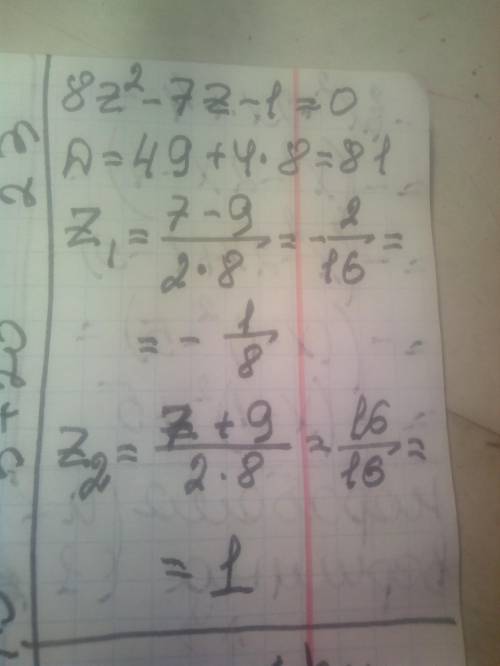 8z² - 7z - 1 = 0
D = 49 + 4·8 = 81
z₁ = (7 - 9)/(2·8) = -2/16 =
= - 1/8
z₂ = (7 + 9)/(2·8) = 16/16 =
= 1
23
5+20